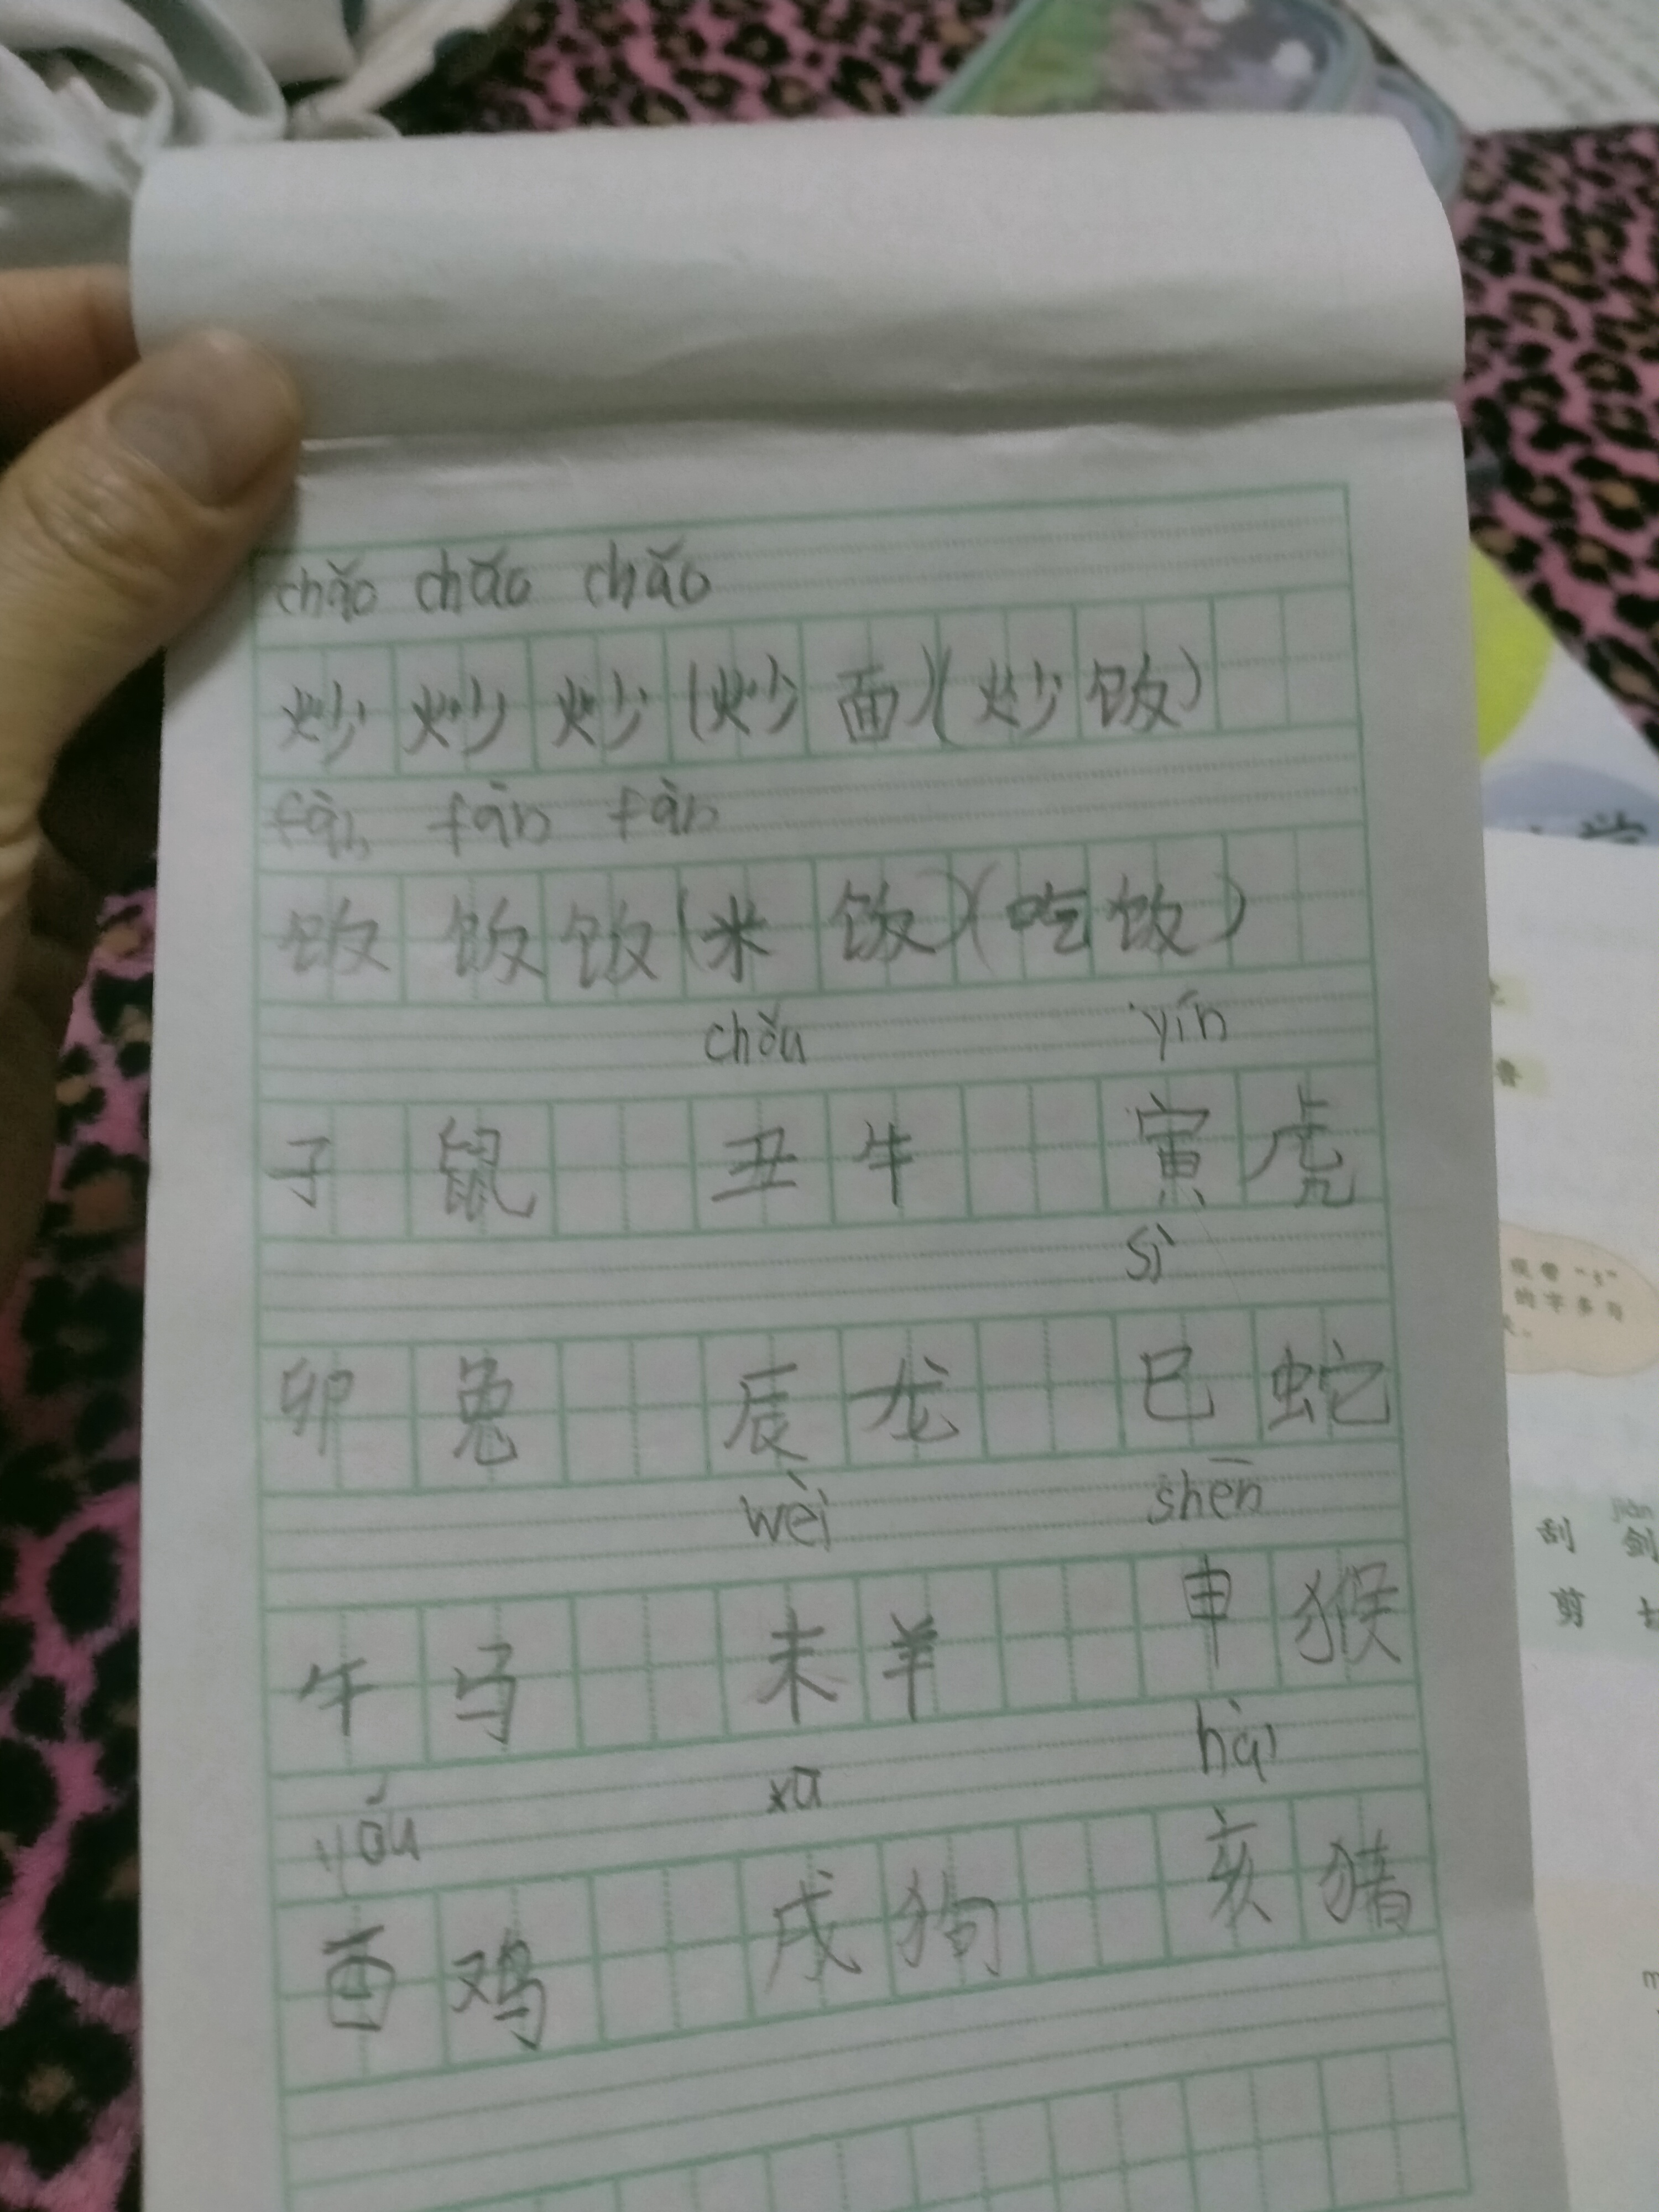 chǎo chǎo chǎo
炒 炒 炒 (炒面)(炒饭)
fàn fàn fàn
饭 饭 饭 (米饭)(吃饭)
chǒu yín
子鼠 丑牛 寅虎
sì
卯兔 辰龙 巳蛇
wèi shēn
午马 未羊 申猴
yǒu xū hài
酉鸡 戌狗 亥猪
鲁
的字多与
jiàn
刮 剑
剪